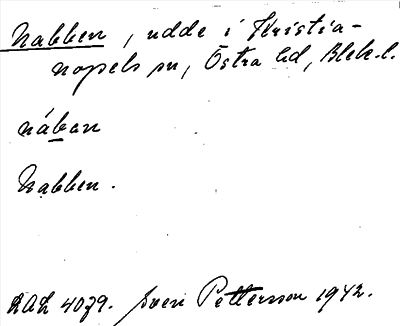 Nabben, udde i Kristia-
nopels sn, Östra hd, Blek. l.
nában
Nabben.
LAL 4079. Sven Pettersson 1942.